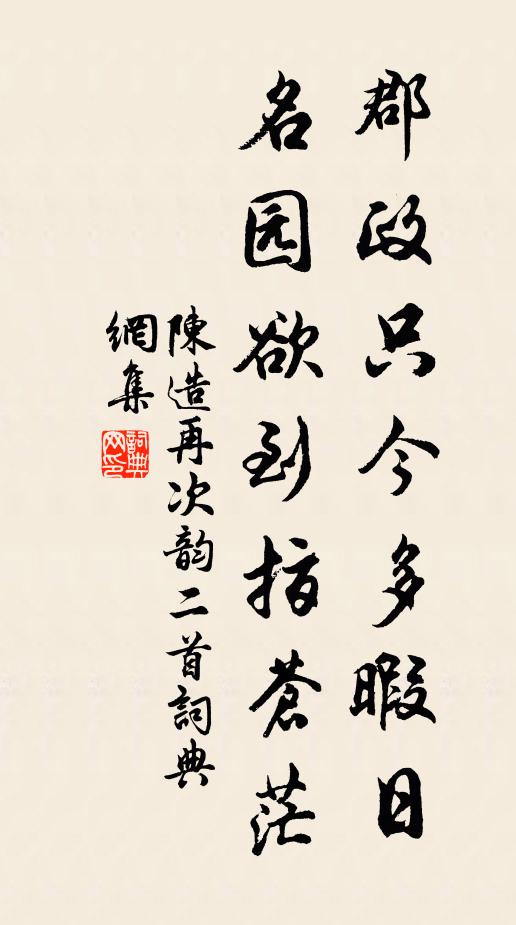 郡政只今多暇日
名园欲到指苍茫
陳造再次韵二首詞典
網集
詞典网印